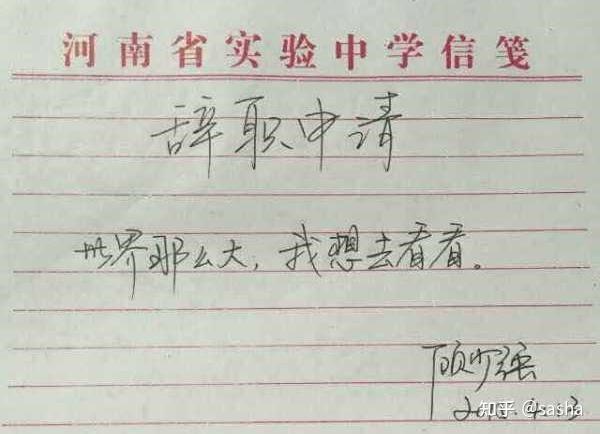 河南省实验中学信笺
辞职申请
世界那么大，我想去看看。
顾少强
知乎 @sasha